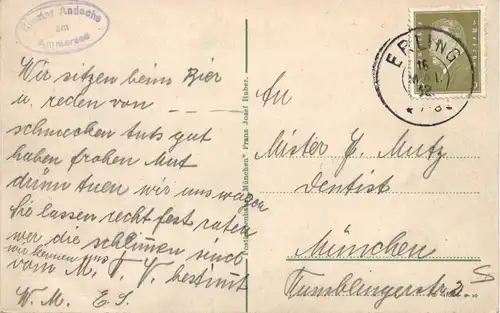 Kloster Andechs
am
Ammersee
Wir sitzen beim Bier
u. reden von _ _ _ _
schmecken tuts gut
haben frohen Mut
drum tuen wir uns wagen
Sie lassen recht fest raten
wer die schlimen sind
wir kennen uns
vom M. T. V. bestimt
W. M. E. S.
Postkartenhaus „München“ Franz Josef Huber.
ERLING
16
32
7-8
An
Mister J. Mutz
Dentist
München
Tumblingerstr. 2